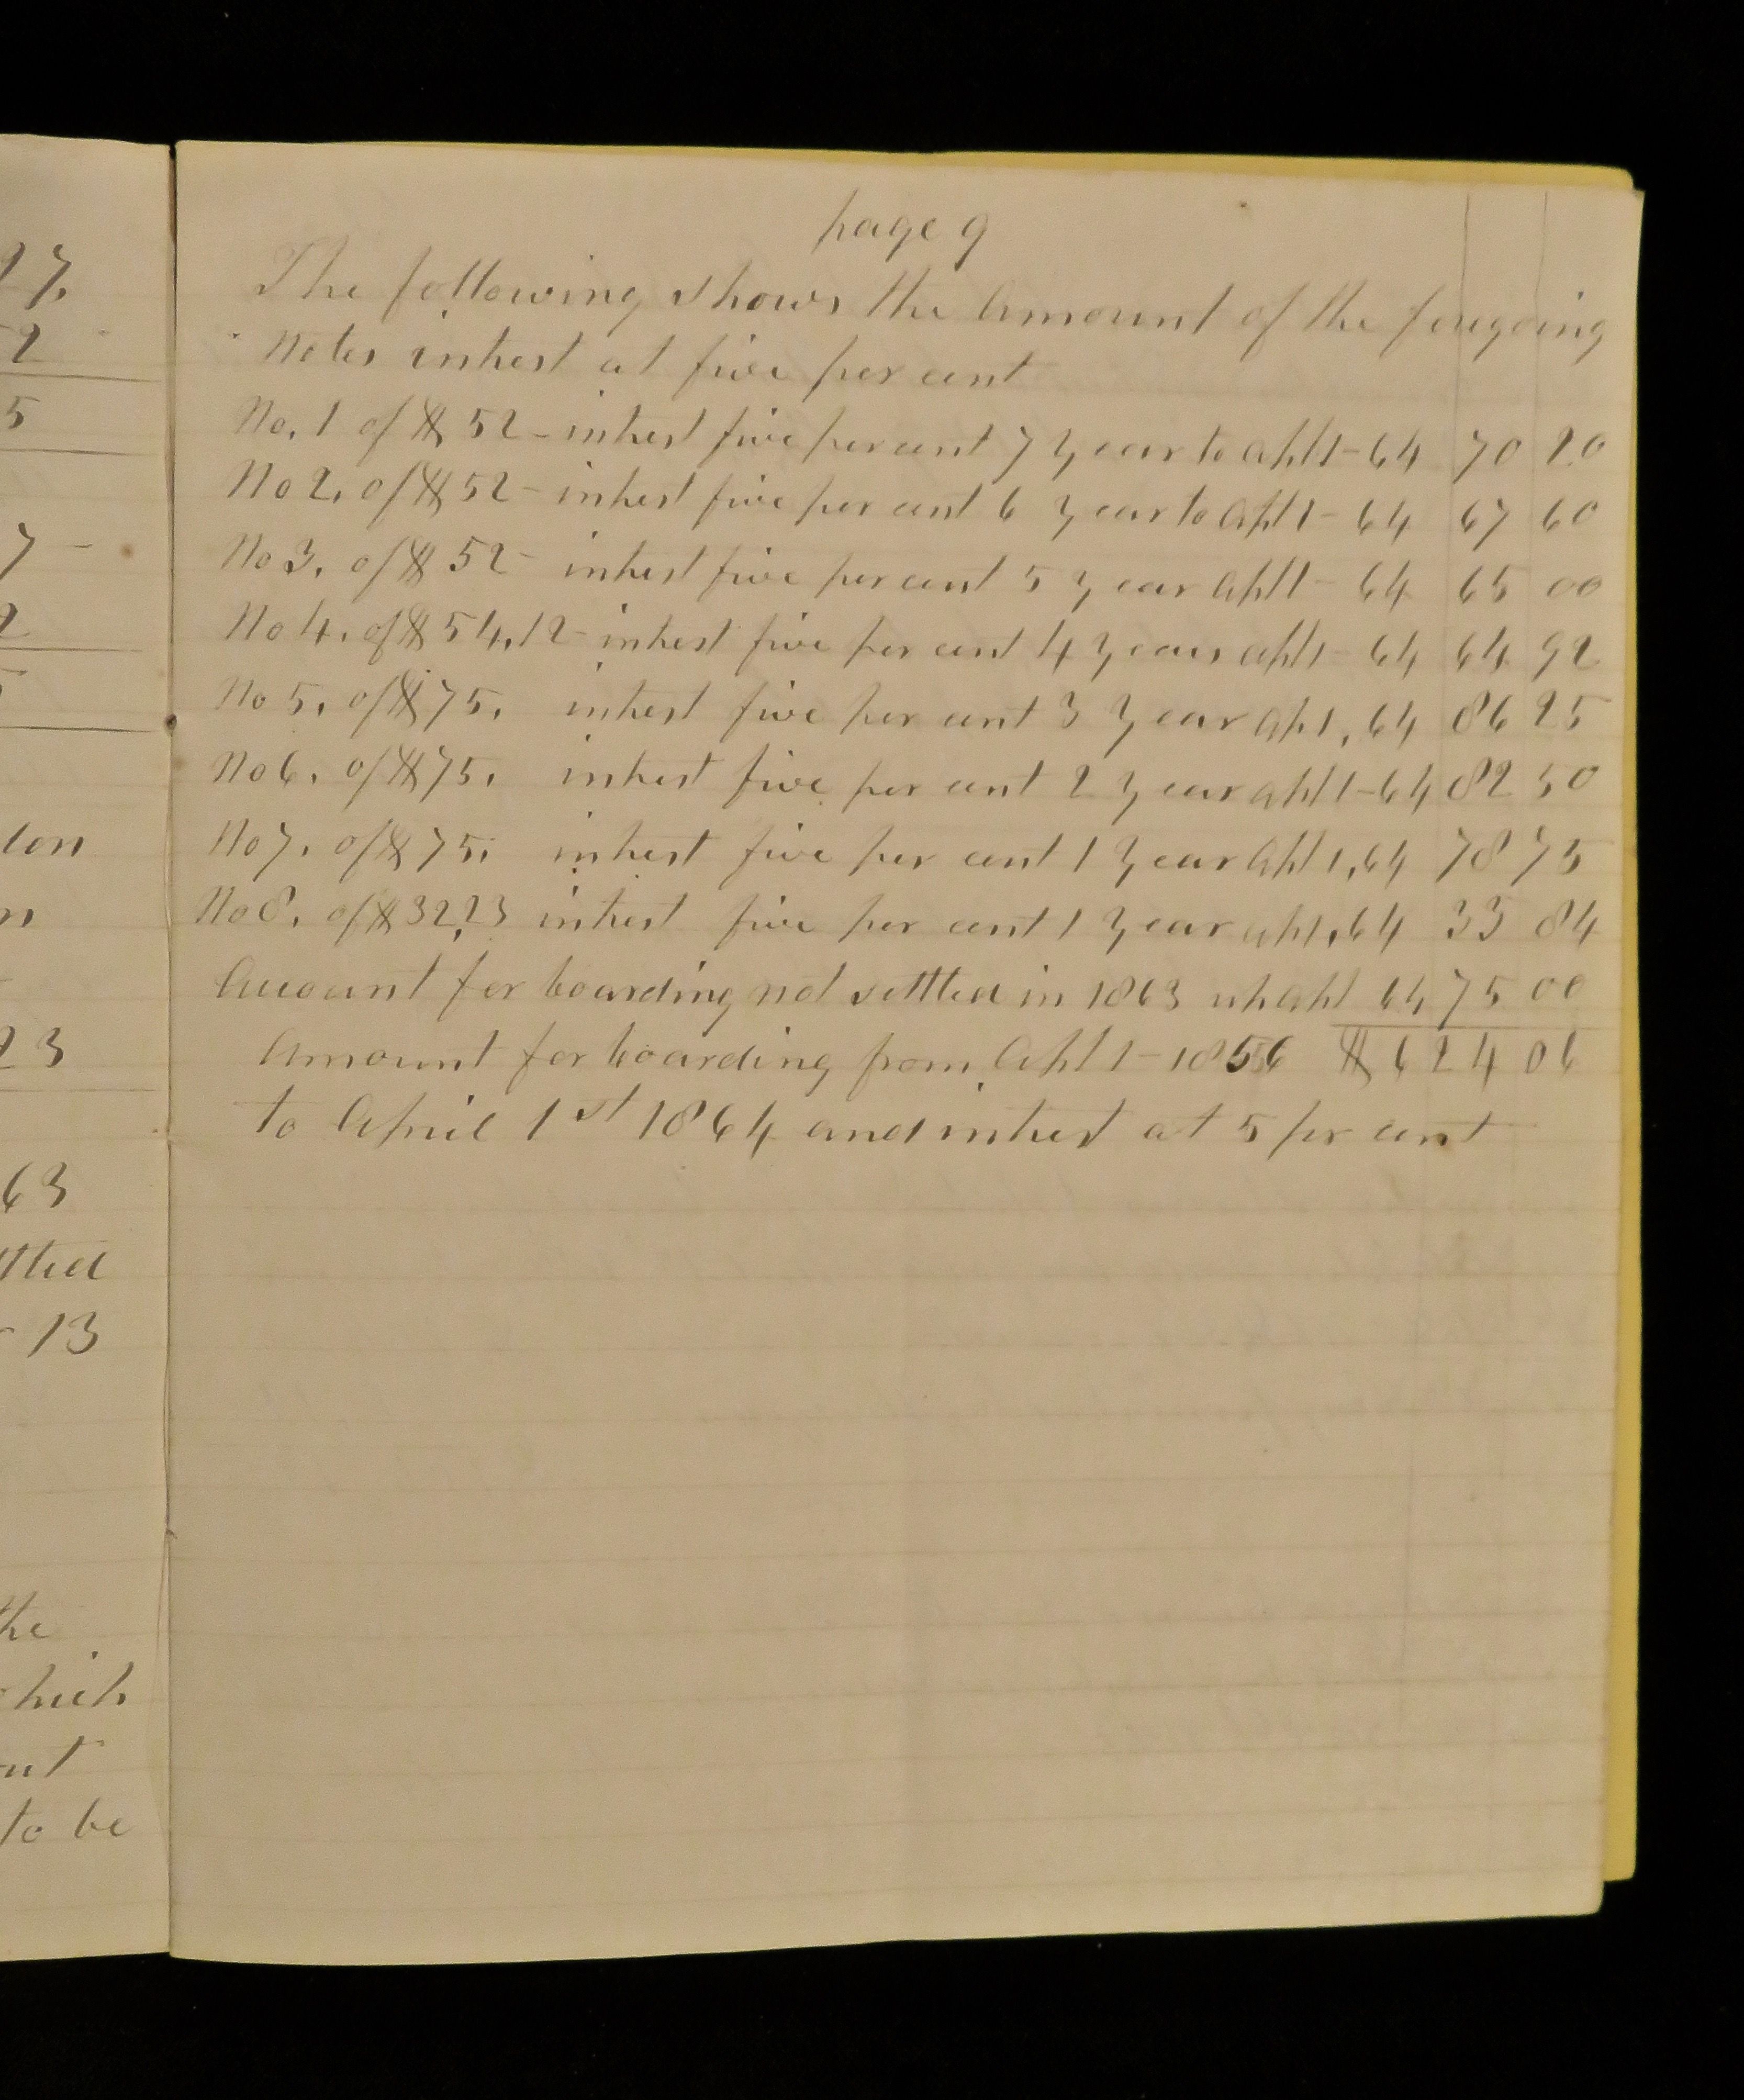 27,
2
5
7 -
2
5
ton
n
23
63
ttled
- 13
the
which
ent
to be
page 9
The following shows the Amount of the foregoing
Notes intrest at five per cent
No. 1 of $ 52 - intrest five per cent 7 year to aprl 1 - 64 70 20
No 2, of $ 52 - intrest five per cent 6 year to Aprl 1 - 64 67 60
No 3, of $ 52 - intrest five per cent 5 year Aprl 1 - 64 65 00
No 4, of $ 54,12 - intrest five per cent 4 years aprl 1 - 64 64 92
No 5, of $ 75, intrest five per cent 3 year Ap 1, 64 86 25
No 6, of $ 75, intrest five per cent 2 year aprl 1 - 64 82 50
No 7, of $ 75, intrest five per cent 1 year Aprl 1, 64 78 75
No 8, of $ 32,23 intrest five per cent 1 year ap 1, 64 33 84
Account for boarding not settled in 1863 up aprl 64 75 00
Amount for boarding from Aprl 1 - 1856 $ 624 06
to April 1st 1864 and intrest at 5 pr cent